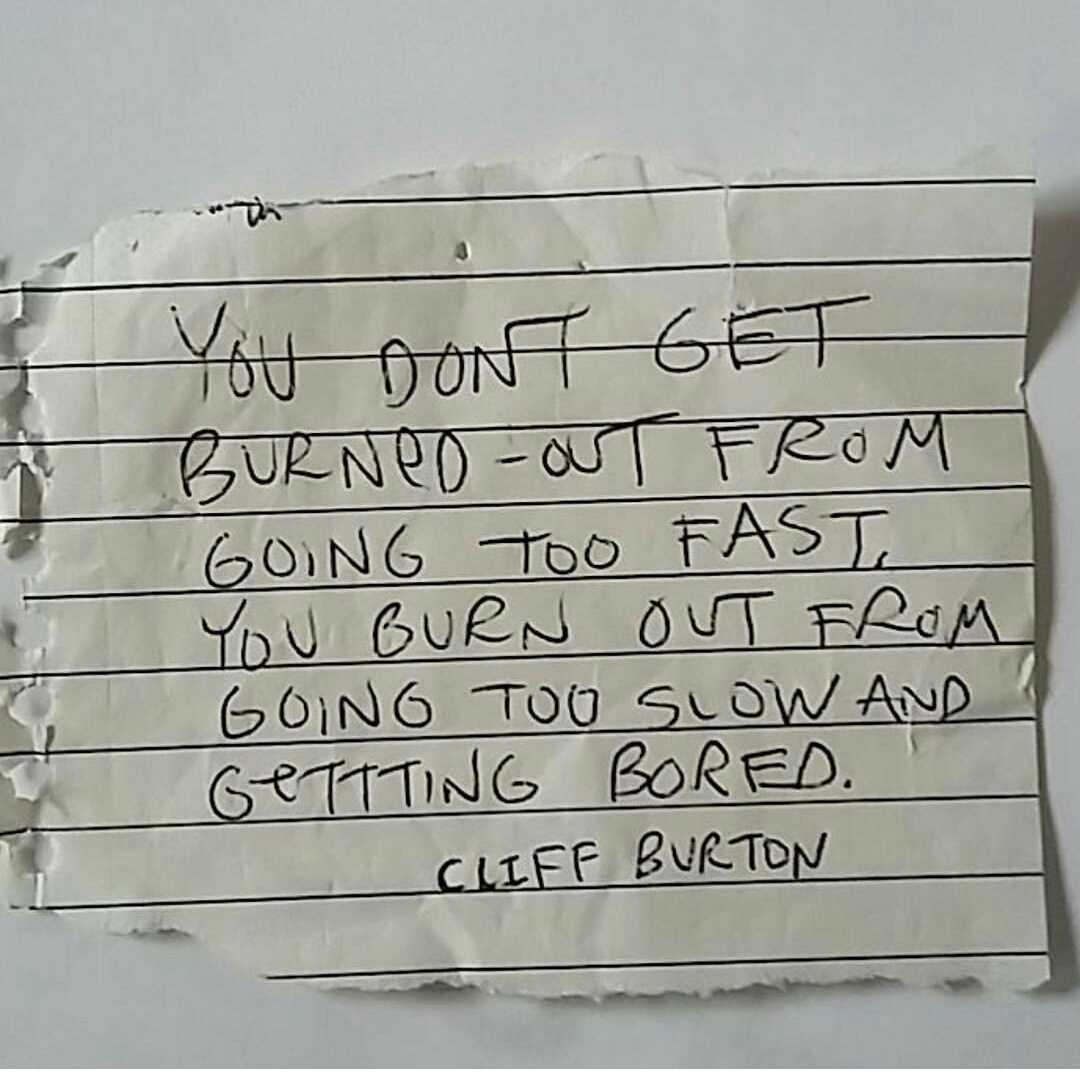 YOU DON'T GET
BURNeD-OUT FROM
GOING TOO FAST.
YOU BURN OUT FROM
GOING TOO SLOW AND
GeTTTING BORED.
CLIFF BURTON